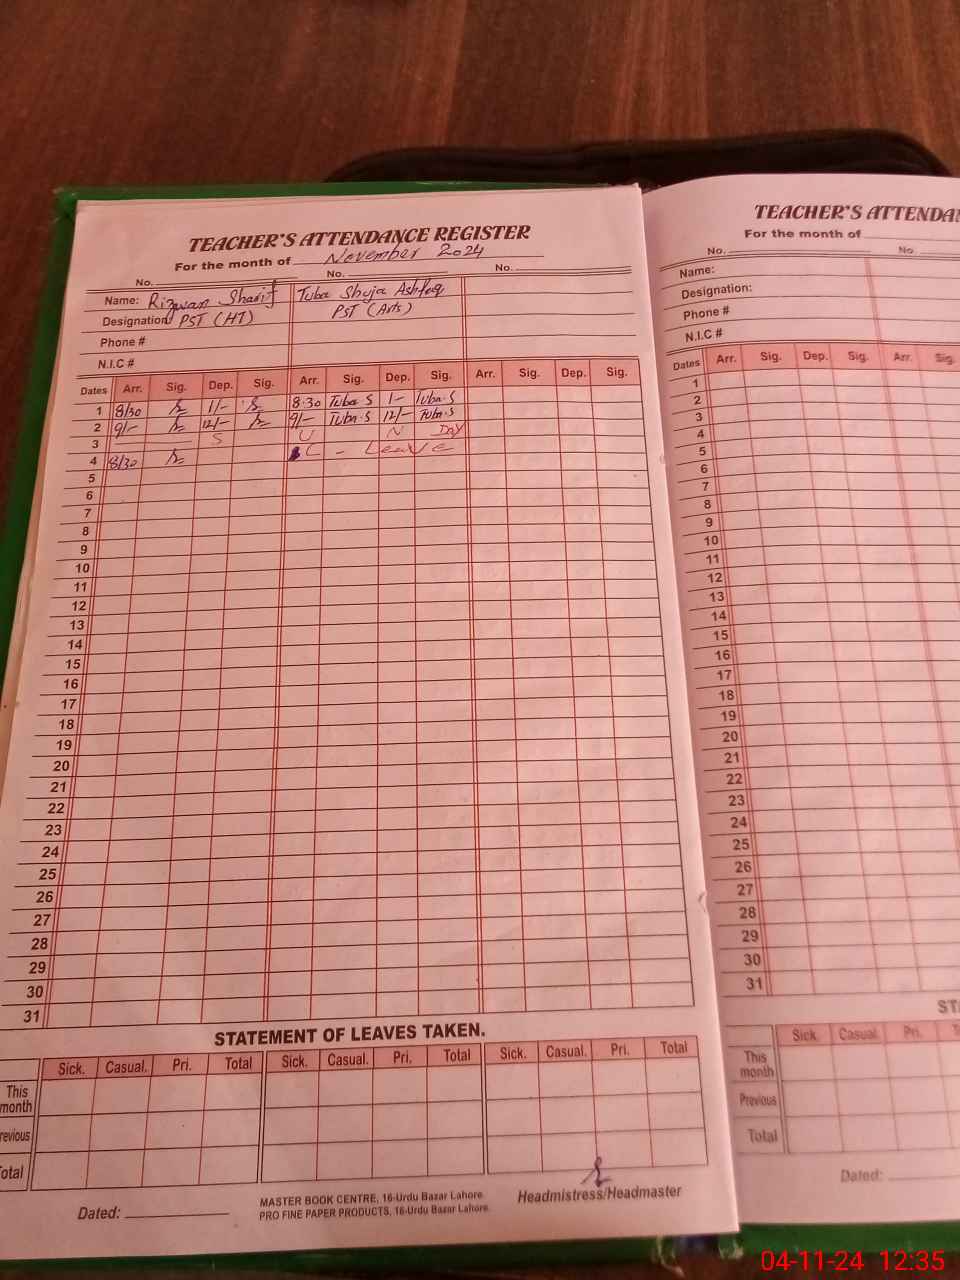 TEACHER'S ATTENDANCE REGISTER
For the month of November 2024
No. No. No.
Name: Rizwan Sharif Tuba Shuja Ashfaq
Designation PST (HT) PST (Arts)
Phone #
N.I.C #
Dates Arr. Sig. Dep. Sig. Arr. Sig. Dep. Sig. Arr. Sig. Dep. Sig.
1 8/30 1/- 8:30 Tuba S 1- Tuba.S
2 9/- 12/- 9/- Tuba.S 12/- Tuba.S
3 S U N DAY
4 8/30 L - Leave
5
6
7
8
9
10
11
12
13
14
15
16
17
18
19
20
21
22
23
24
25
26
27
28
29
30
31
STATEMENT OF LEAVES TAKEN.
Sick. Casual. Pri. Total Sick. Casual. Pri. Total Sick. Casual. Pri. Total
This month
revious
otal
Dated:
MASTER BOOK CENTRE, 16-Urdu Bazar Lahore.
PRO FINE PAPER PRODUCTS, 16-Urdu Bazar Lahore.
Headmistress/Headmaster
TEACHER'S ATTENDA
For the month of
No. No.
Name:
Designation:
Phone #
N.I.C #
Dates Arr. Sig. Dep. Sig. Arr. Sig.
1
2
3
4
5
6
7
8
9
10
11
12
13
14
15
16
17
18
19
20
21
22
23
24
25
26
27
28
29
30
31
ST
Sick. Casual. Pri.
This month
Previous
Total
Dated:
04-11-24 12:35